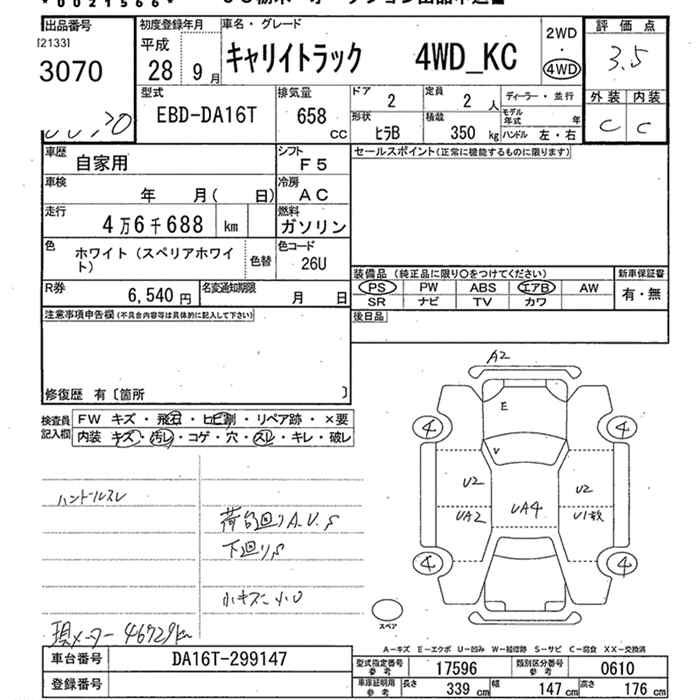 * 0021566 *
出品番号
[2133]
3070
初度登録年月
平成
28 9月
車名・グレード
キャリイトラック 4WD_KC
2WD
・
4WD
評価点
3.5
外装 内装
C C
型式
EBD-DA16T
排気量
658 CC
ドア
2
定員
2 人
形状
ヒラB
積載
350 kg
ディーラー・並行
モデル年式 年
ハンドル 左・右
車歴
自家用
シフト
F5
セールスポイント(正常に機能するものに限ります)
車検
年 月( 日)
冷房
AC
走行
4万6千688 km
燃料
ガソリン
色
ホワイト(スペリアホワイト)
色替
色コード
26U
装備品 (純正品に限り○をつけてください)
PS PW ABS エアB AW
SR ナビ TV カワ
新車保証書
有・無
R券
6,540 円
名変通知期限
月 日
後日品
注意事項申告欄(不具合内容等は具体的に記入して下さい)
修復歴 有〔箇所 〕
検査員記入欄
FW キズ・飛石・ヒビ割・リペア跡・×要
内装 キズ・汚レ・コゲ・穴・スレ・キレ・破レ
A2
E
V
4 4
U2 U2
UA2 UA4 U1数
4 4
スペア
ハンドルスレ
荷台回りA.U.S
下廻りS
小キズ小U
現メーター 46729km
A-キズ E-エクボ U-凹み W-補修跡 S-サビ C-腐食 XX-交換済
車台番号 DA16T-299147
登録番号
型式指定番号参考 17596
類別区分番号参考 0610
車庫証明用参考 長さ 339 cm 幅 147 cm 高さ 176 cm